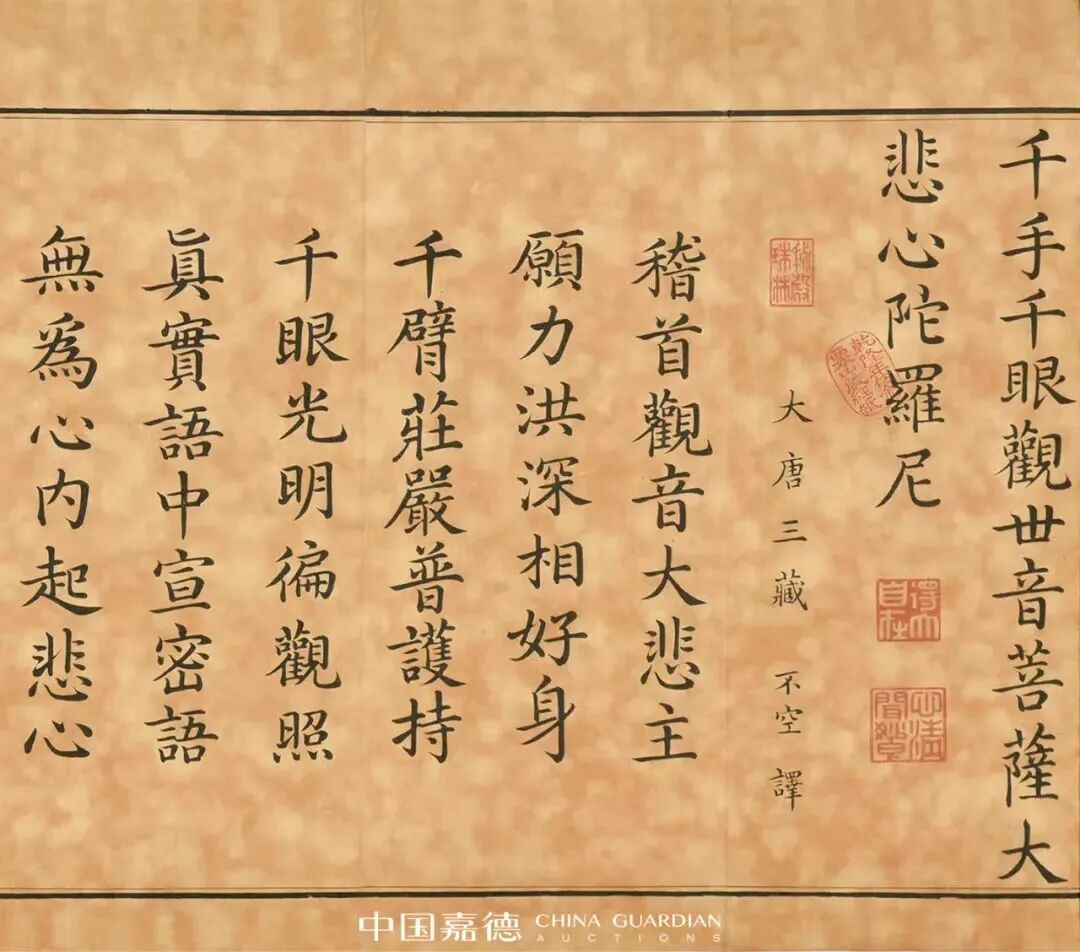 千手千眼觀世音菩薩大
悲心陀羅尼
秘殿珠林
乾隆年仿金粟山藏經紙
得大自在
大唐三藏 不空譯
稽首觀音大悲主
願力洪深相好身
千臂莊嚴普護持
千眼光明徧觀照
眞實語中宣密語
無爲心内起悲心
中国嘉德 CHINA GUARDIAN
AUCTIONS